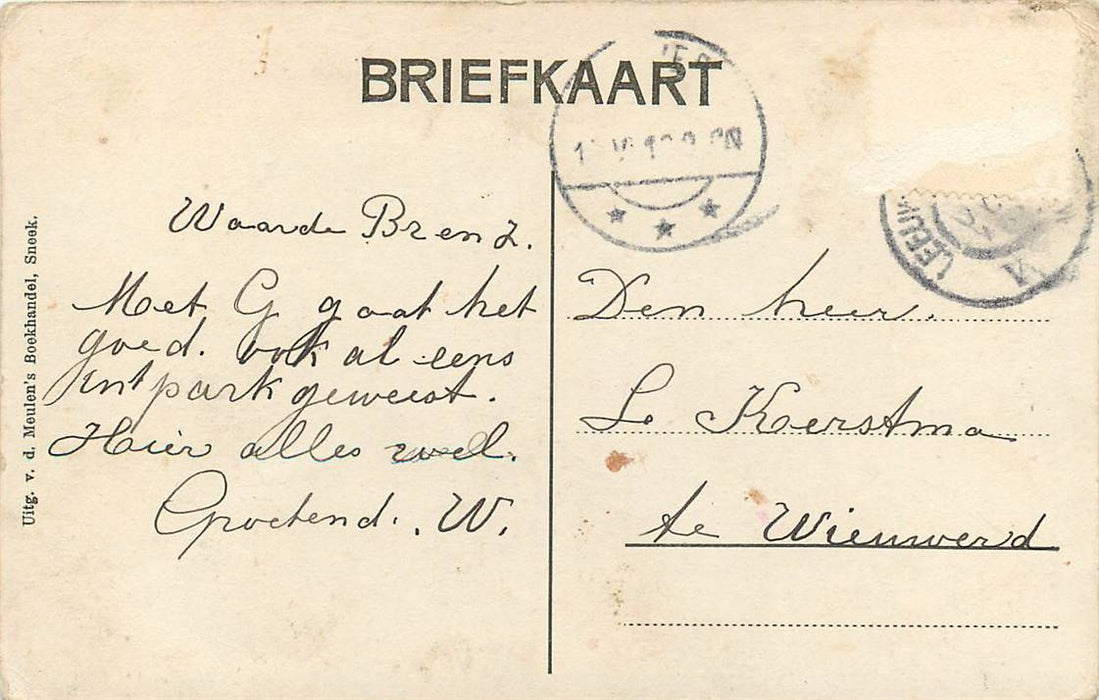 BRIEFKAART
Waarde Brenz.
Met G gaat het
goed. ook al eens
park geweest.
Hier alles wel.
Groetend. W.
Den heer.
Kerstma
te Wieuwerd
LEEUW
Uitg. v. d. Meulen's Boekhandel, Sneek.